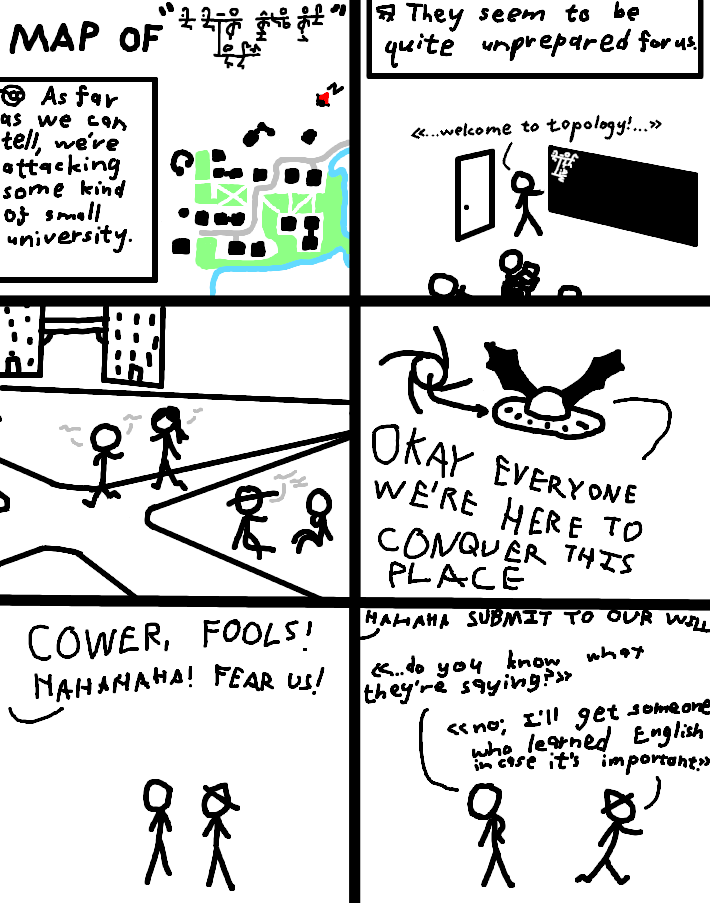 MAP OF " "
As far
as we can
tell, we're
attacking
some kind
of small
university.
N
They seem to be
quite unprepared for us.
«...welcome to topology!...»
OKAY EVERYONE
WE'RE HERE TO
CONQUER THIS
PLACE
COWER, FOOLS!
HAHAHAHA! FEAR US!
HAHAHA SUBMIT TO OUR WILL
«...do you know what
they're saying?»
«no; I'll get someone
who learned English
in case it's important.»